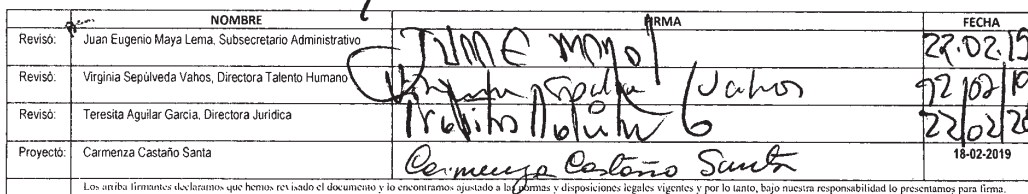 NOMBRE FIRMA FECHA
Revisó: Juan Eugenio Maya Lema, Subsecretario Administrativo 22.02.19
Revisó: Virginia Sepúlveda Vahos, Directora Talento Humano Virginia Sepúlveda Vahos
Revisó: Teresita Aguilar García, Directora Jurídica 22/02/20
Proyectó: Carmenza Castaño Santa Carmenza Castaño Santa 18-02-2019
Los arriba firmantes declaramos que hemos revisado el documento y lo encontramos ajustado a las normas y disposiciones legales vigentes y por lo tanto, bajo nuestra responsabilidad lo presentamos para firma.